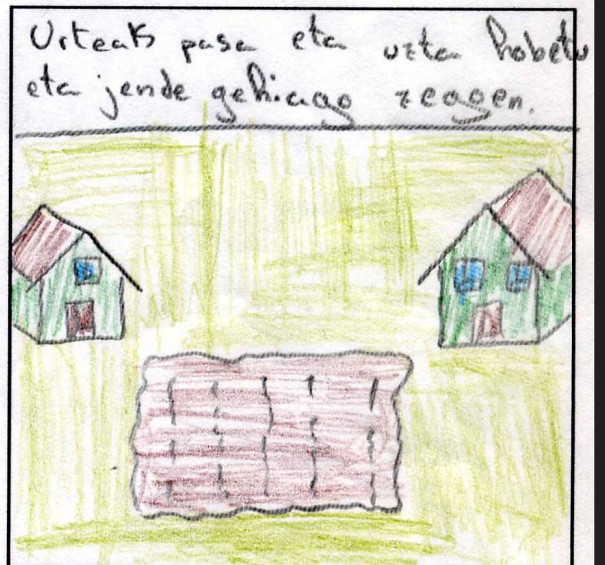 Urteak pasa eta uzta hobetu
eta jende gehiago zeagen.